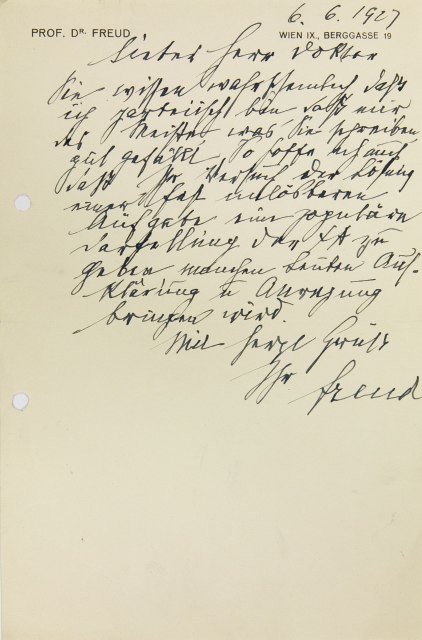 6. 6. 1927
PROF. DR. FREUD
WIEN IX., BERGGASSE 19
Lieber Herr Doktor
Sie wissen wahrscheinlich daß
ich parteiisch bin daß mir
das Meiste was Sie schreiben
gut gefällt. So hoffe ich auch
daß Ihr Versuch der Lösung
einer fast unlösbaren
Aufgabe eine populäre
Darstellung der ΨA zu
geben manchen Leuten Auf-
klärung u Anregung
bringen wird.
Mit herzl Gruß
Ihr Freud